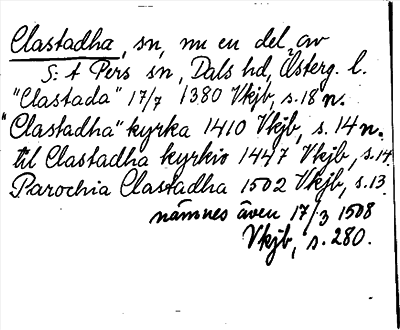 Clastadha, sn, nu en del av
S:t Pers sn, Dals hd, Österg. l.
"Clastada" 17/7 1380 Vkjb, s.18 n.
"Clastadha" kyrka 1410 Vkjb, s. 14 n.
til Clastadha kyrkio 1447 Vkjb, s.14
Parochia Clastadha 1502 Vkjb, s.13
nämnes även 17/3 1508
Vkjb, s. 280.